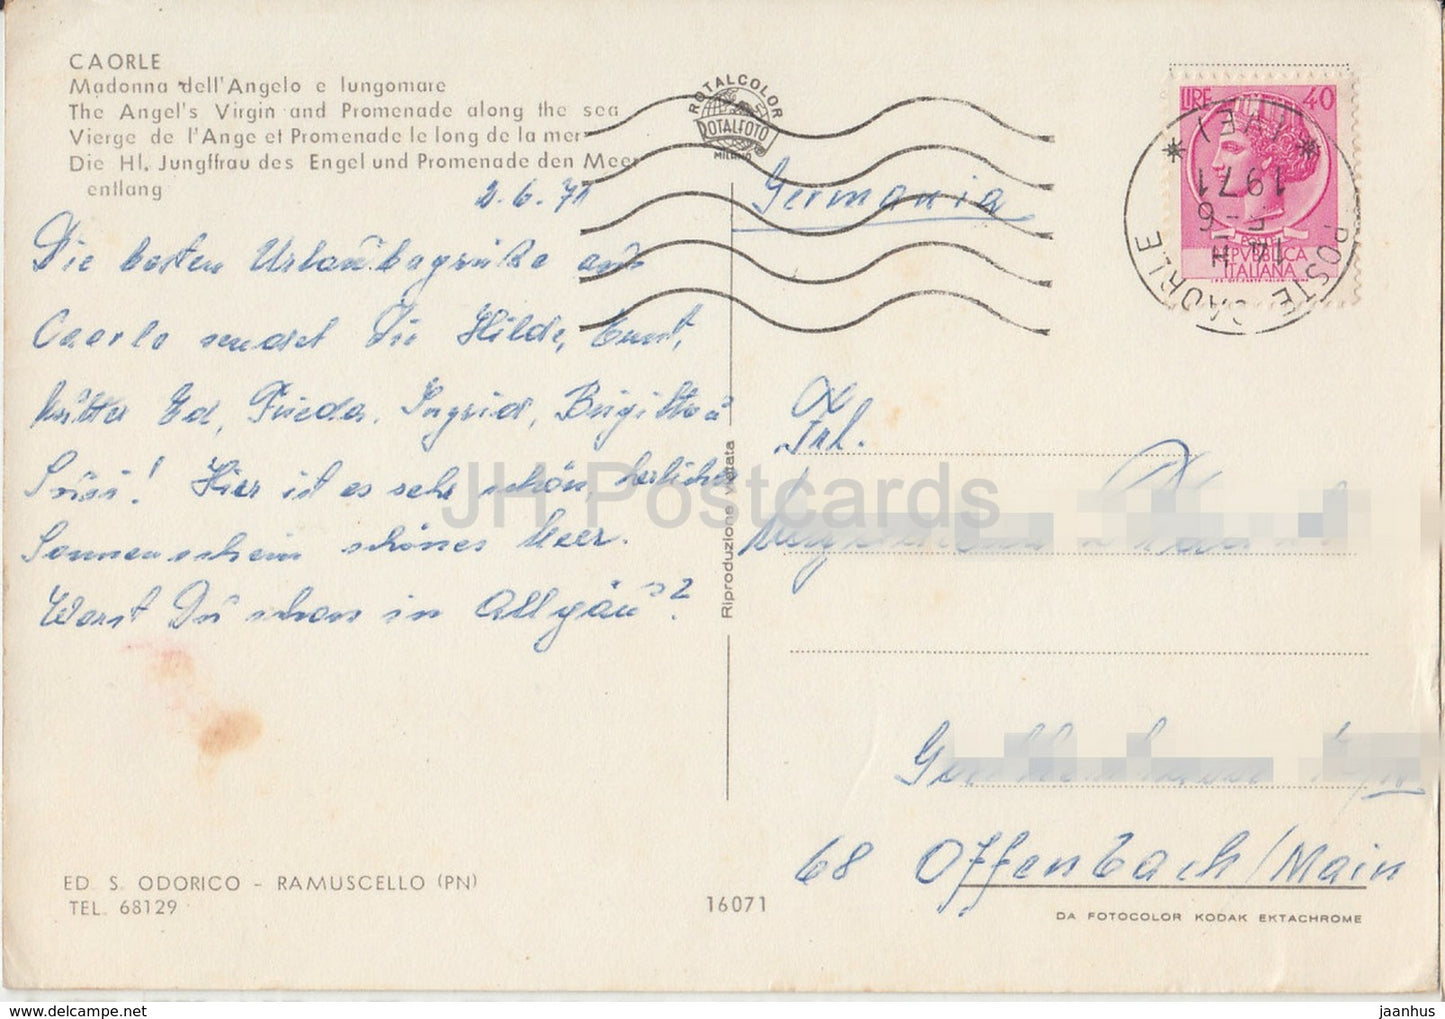 CAORLE
Madonna dell'Angelo e lungomare
The Angel's Virgin and Promenade along the sea
Vierge de l'Ange et Promenade le long de la mer
Die Hl. Jungffrau des Engel und Promenade den Meer
entlang
2.6.71
Die besten Urlaubsgrüße aus
Caorle sendet Dir Hilde,
Ed, Frieda, Ingrid, Brigitte u
! Hier ist es sehr schön, herlicher
Sonnenschein schönes Meer.
Warst Du schon in Allgäu?
ROTALCOLOR
ROTALFOTO
MILANO
Germania
LIRE 40
REPVBBLICA
ITALIANA
POSTE CAORLE
(VE)
14 H
1971
Frl.
68 Offenbach/Main
Riproduzione vietata
JH Postcards
ED. S. ODORICO - RAMUSCELLO (PN)
TEL. 68129
16071
DA FOTOCOLOR KODAK EKTACHROME
www.delcampe.net
jaanhus